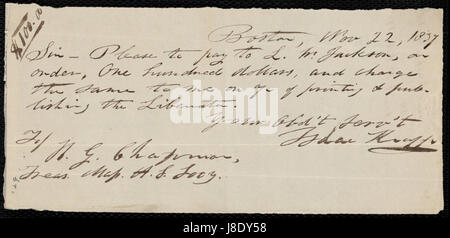 $100.00
Boston, Nov 22, 1837
Sir — Please to pay to L. M. Jackson, or
order, One hundred dollars, and charge
the same to me on % of printing & pub-
lishing the Liberator.
Your Obd't Serv't
Isaac Knapp
To/
H. G. Chapman,
Treas. Mass. A. S. Socy.
a alamy
alamy
Image ID: J8DY58
www.alamy.com